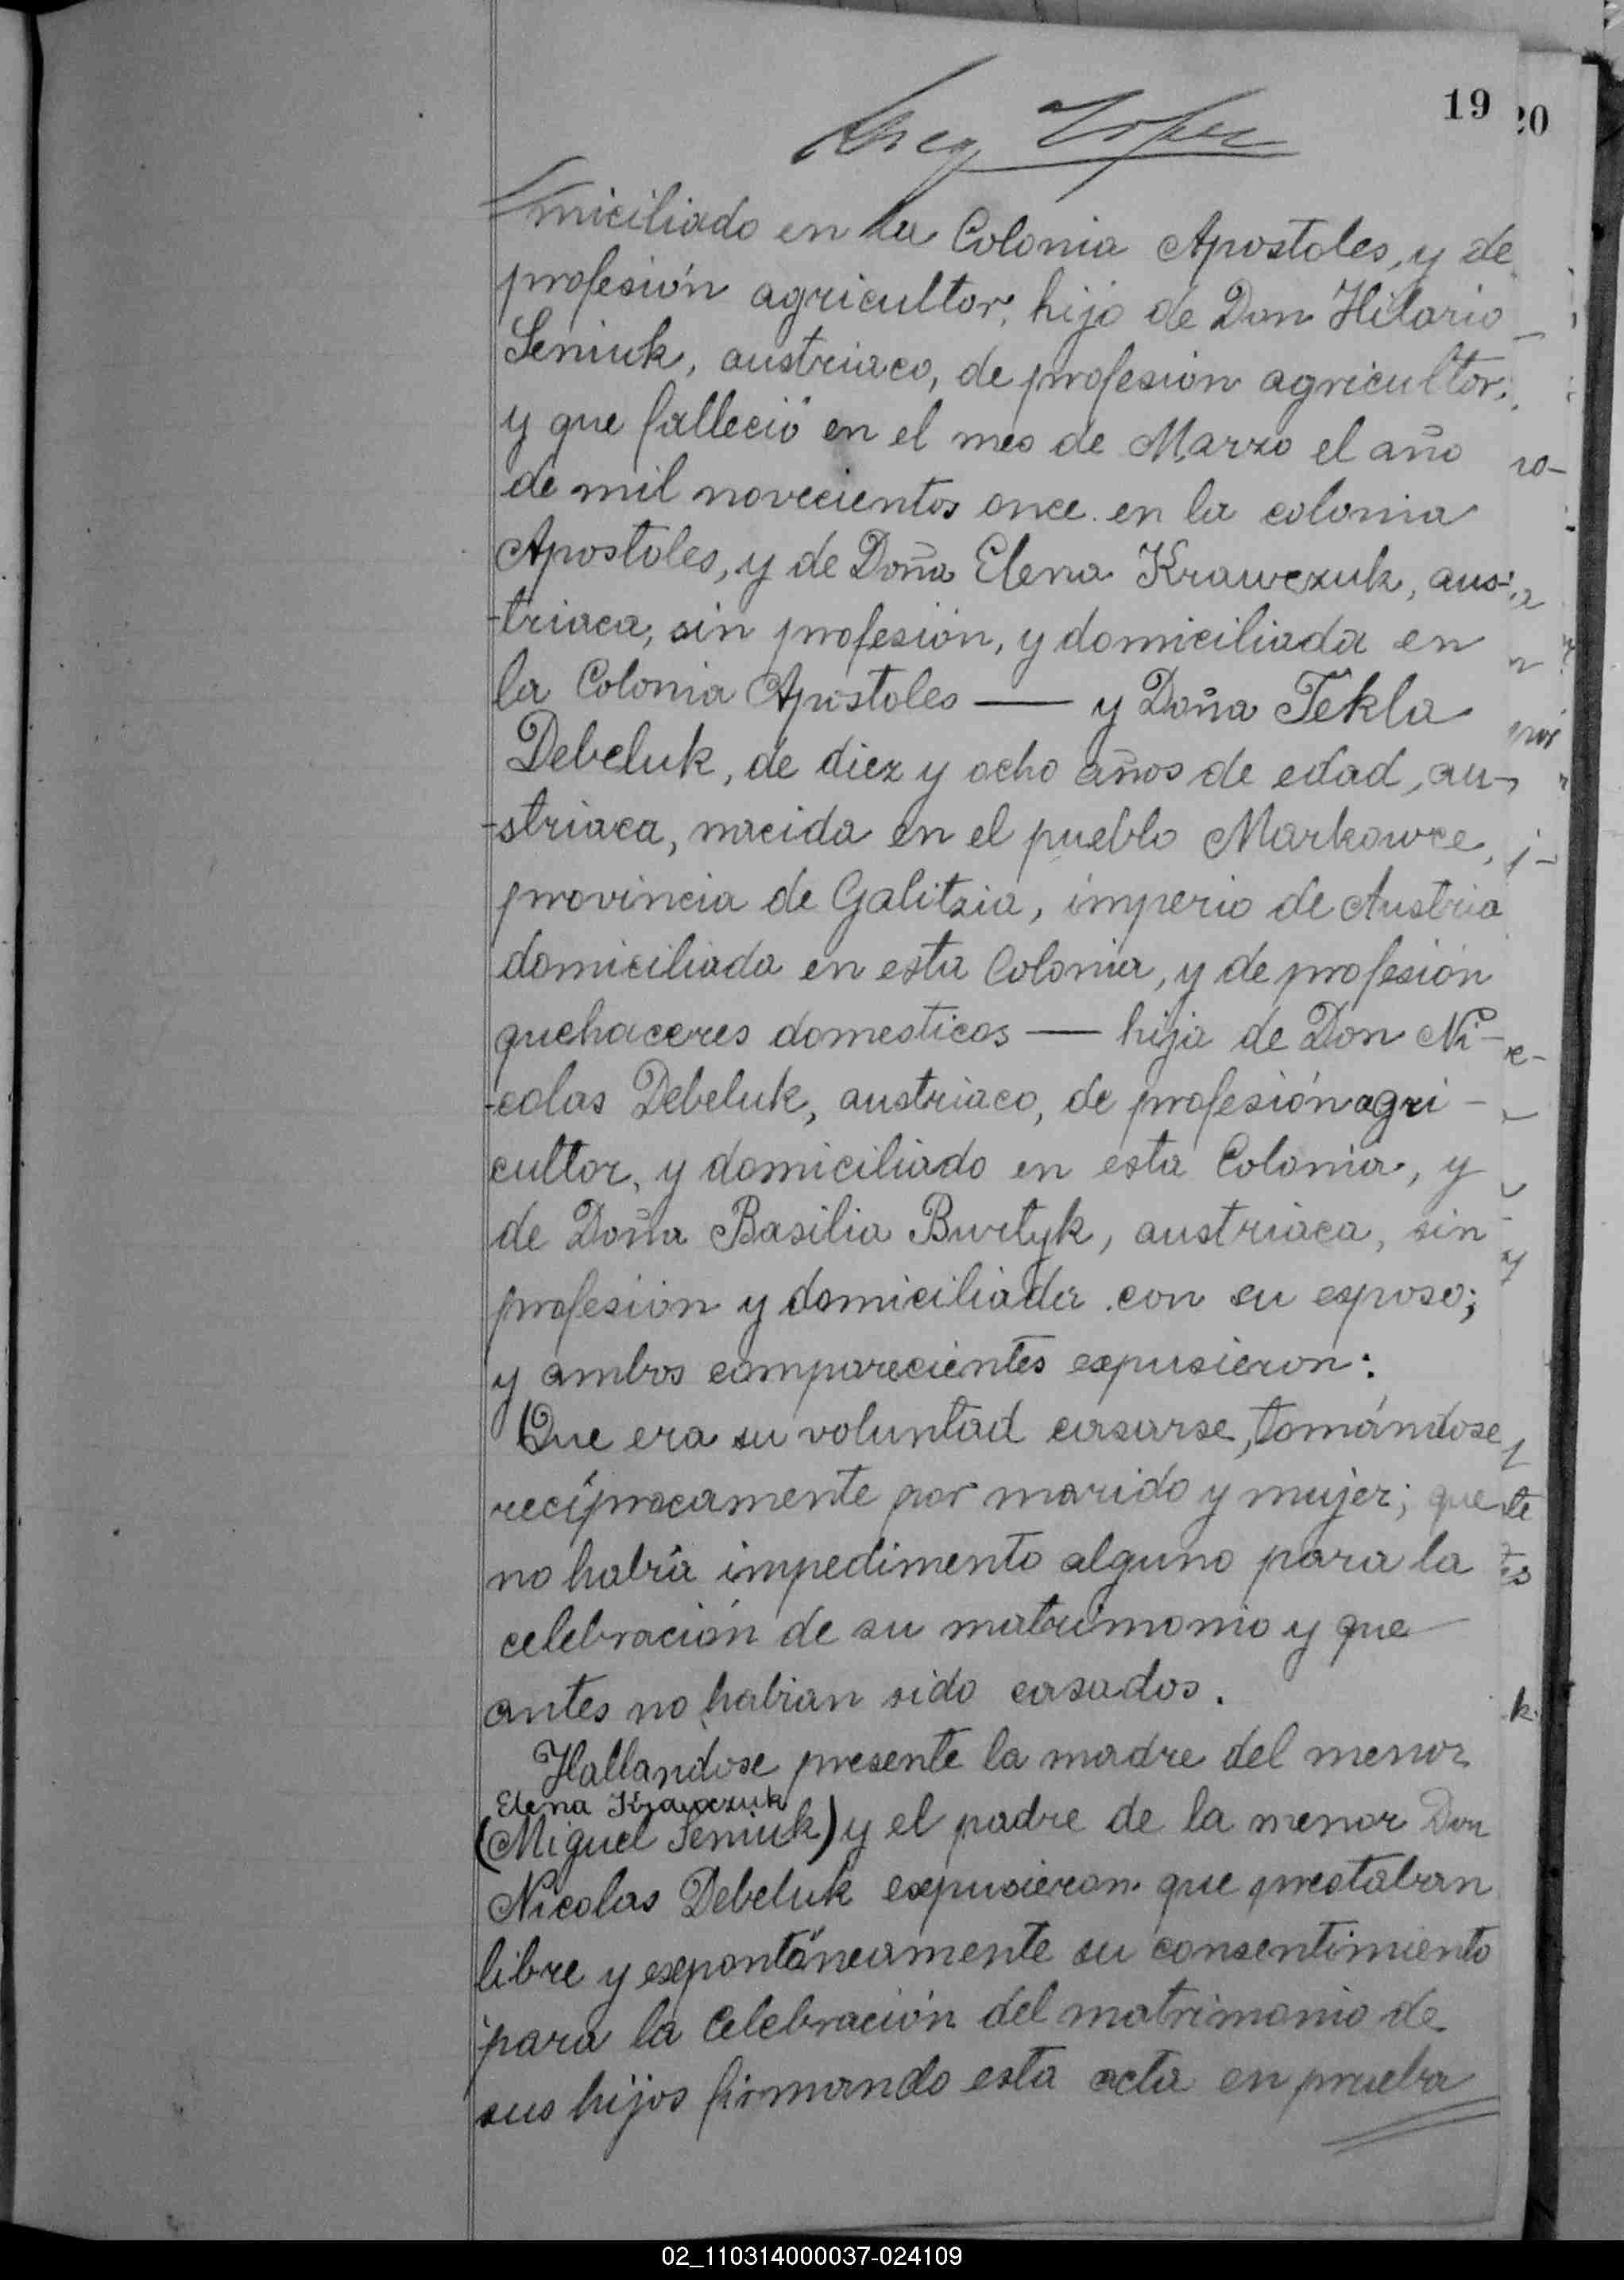 19
20
miciliado en la Colonia Apostoles, y de
profesión agricultor, hijo de Don Hilario
Seniuk, austriaco, de profesion agricultor,
y que falleció en el mes de Marzo el año
de mil novecientos once en la colonia
Apostoles, y de Doña Elena Krawczuk, aus-
-triaca, sin profesión, y domiciliada en
la Colonia Apostoles — y Doña Tekla
Debeluk, de diez y ocho años de edad, au-
-striaca, nacida en el pueblo Markowce,
provincia de Galitzia, imperio de Austria
domiciliada en esta Colonia, y de profesión
quehaceres domesticos — hija de Don Ni-
-colas Debeluk, austriaco, de profesión agri-
cultor, y domiciliado en esta Colonia, y
de Doña Basilia Burtyk, austriaca, sin
profesion y domiciliada con su esposo;
y ambos comparecientes expusieron:
Que era su voluntad casarse, tomándose
recíprocamente por marido y mujer; que
no habría impedimento alguno para la
celebración de su matrimonio y que
antes no habian sido casados.
Hallandose presente la madre del menor
Elena Krawczuk
(Miguel Seniuk) y el padre de la menor Don
Nicolas Debeluk expusieron que prestaban
libre y expontáneamente su consentimiento
para la celebración del matrimonio de
sus hijos firmando esta acta en prueba
02_110314000037-024109